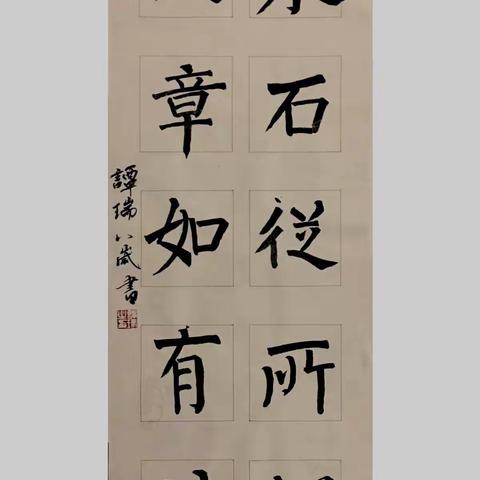 石從所
章如有
譚瑞八歲書